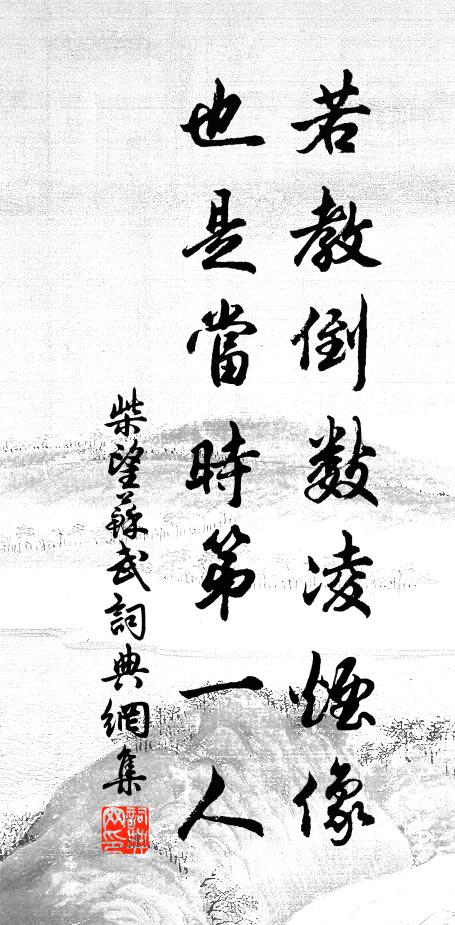 若教倒數凌煙像
也是當時第一人
柴望蘇武詞典網集